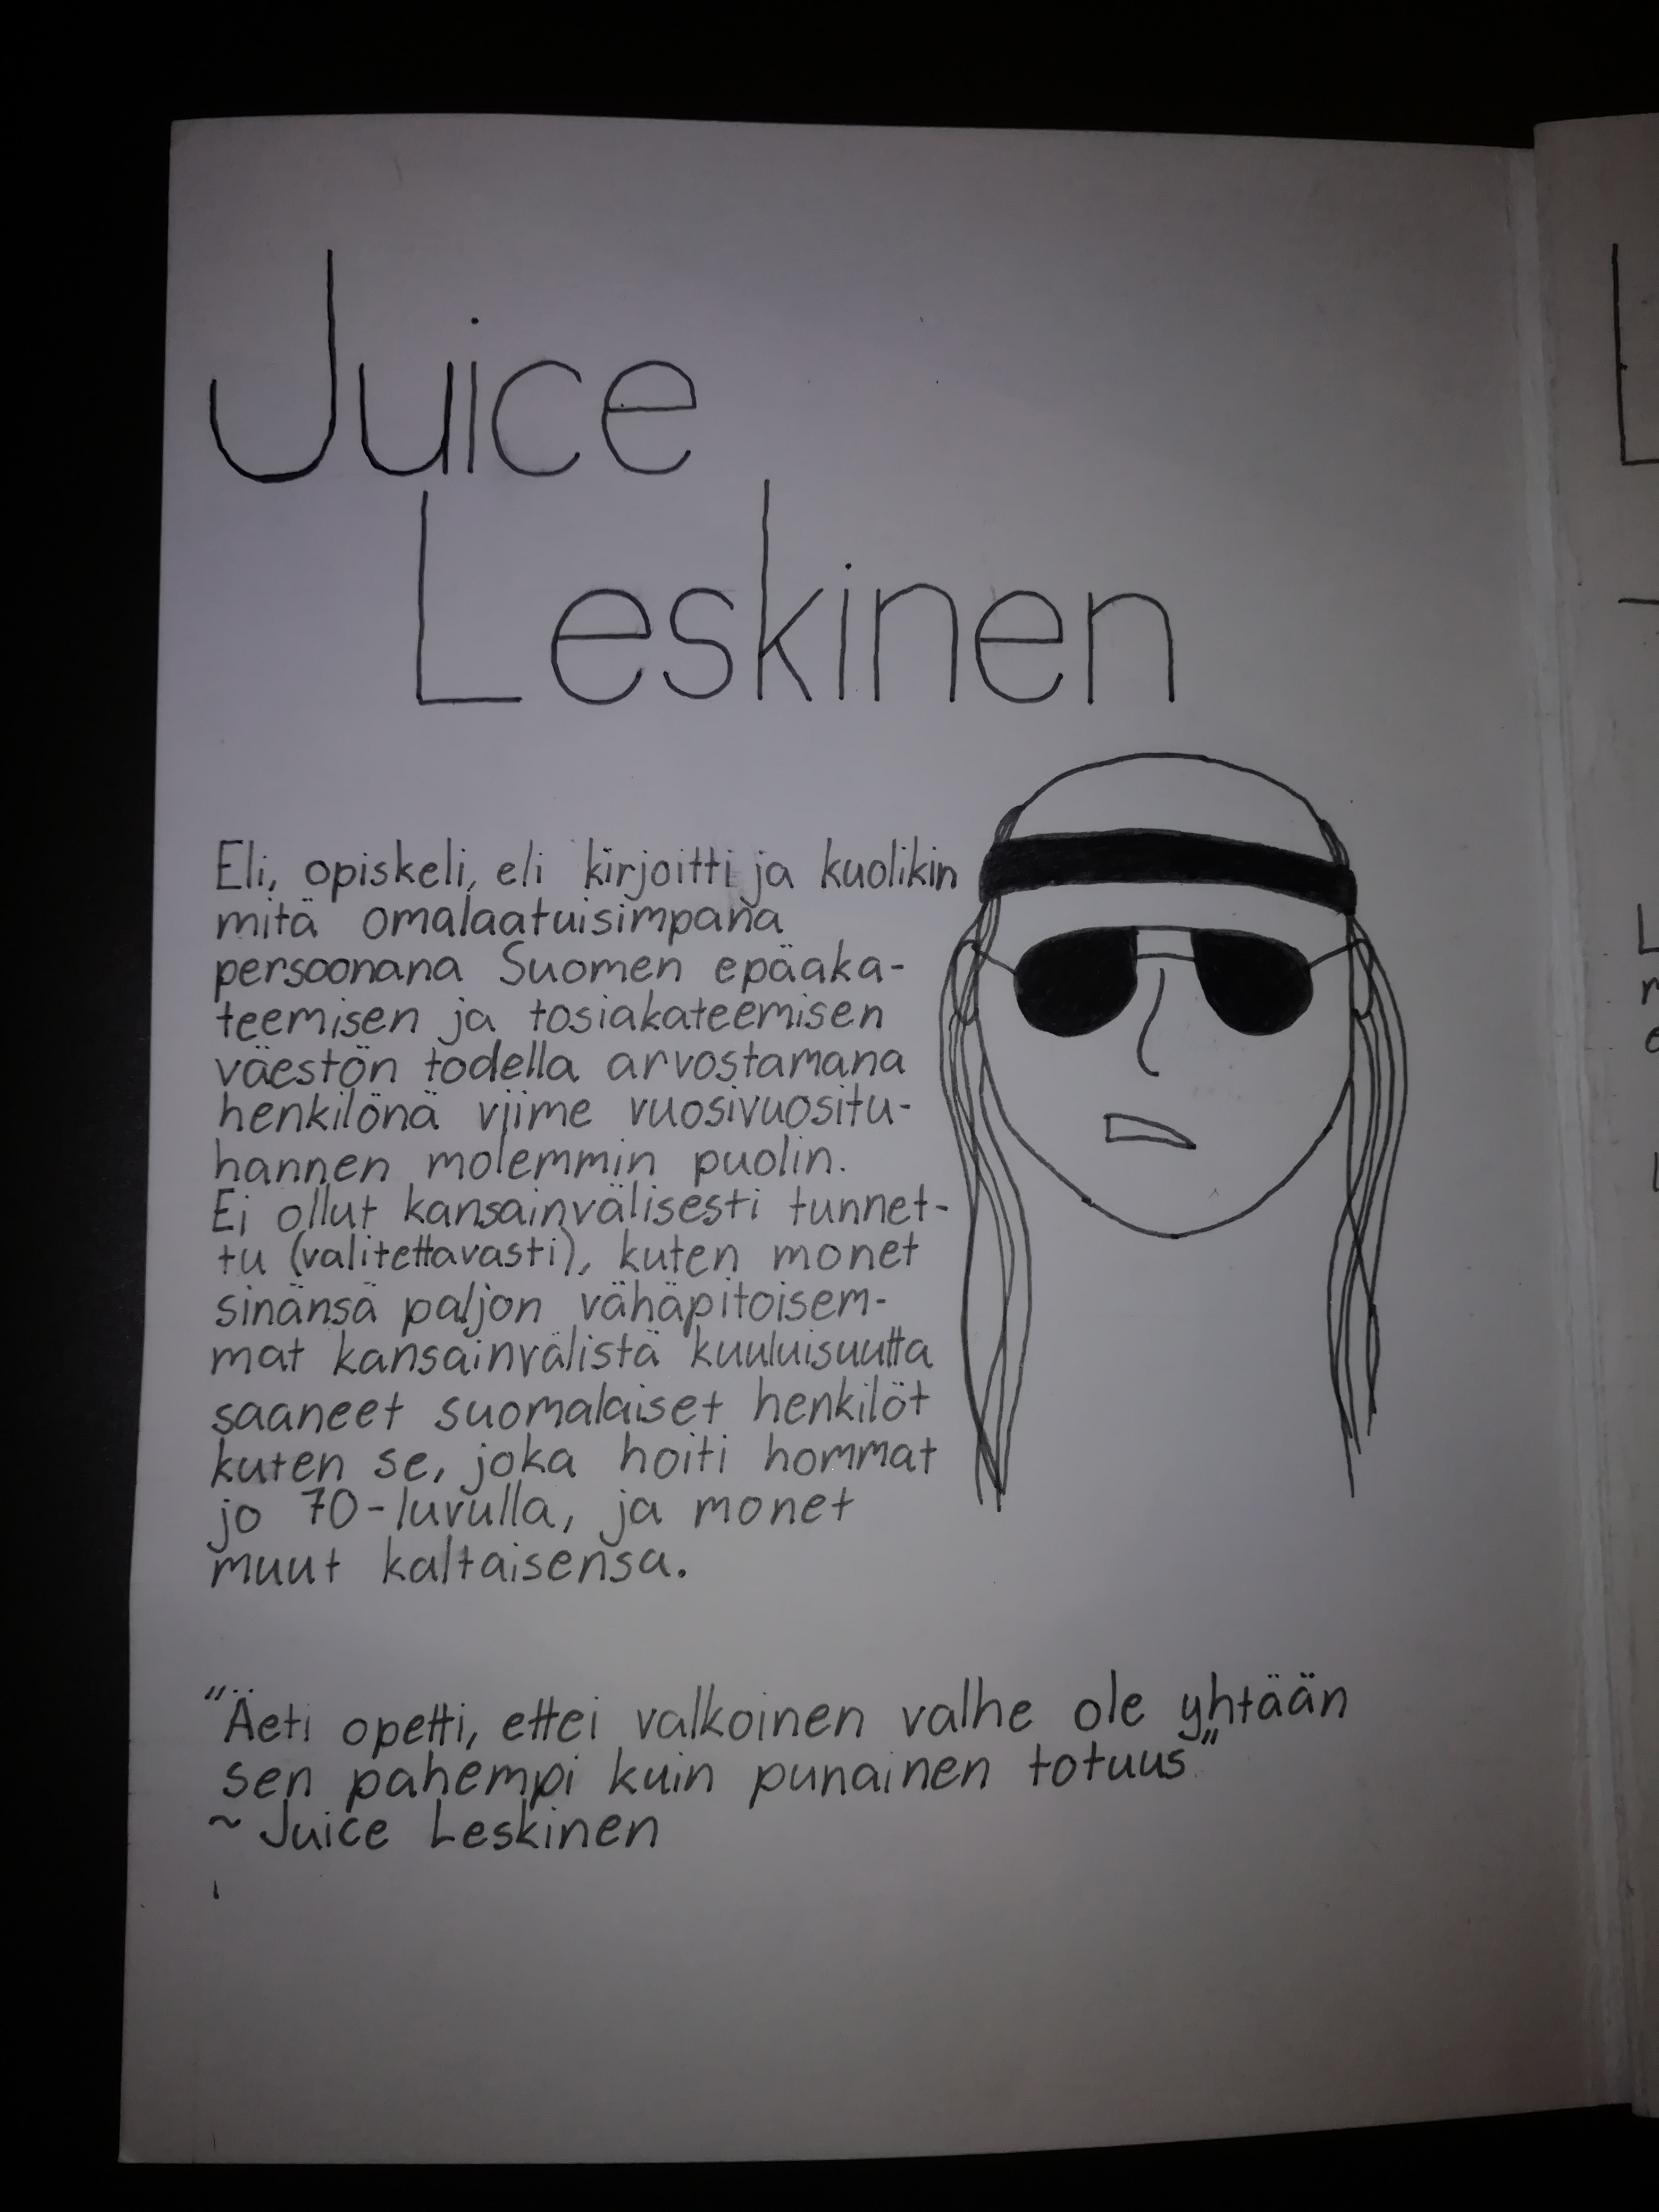 Juice
Leskinen
Eli, opiskeli, eli kirjoitti ja kuolikin
mitä omalaatuisimpana
persoonana Suomen epäaka-
teemisen ja tosiakateemisen
väestön todella arvostamana
henkilönä viime vuosivuositu-
hannen molemmin puolin.
Ei ollut kansainvälisesti tunnet-
tu (valitettavasti), kuten monet
sinänsä paljon vähäpitoisem-
mat kansainvälistä kuuluisuutta
saaneet suomalaiset henkilöt
kuten se, joka hoiti hommat
jo 70-luvulla, ja monet
muut kaltaisensa.
"Äeti opetti, ettei valkoinen valhe ole yhtään
sen pahempi kuin punainen totuus"
~ Juice Leskinen